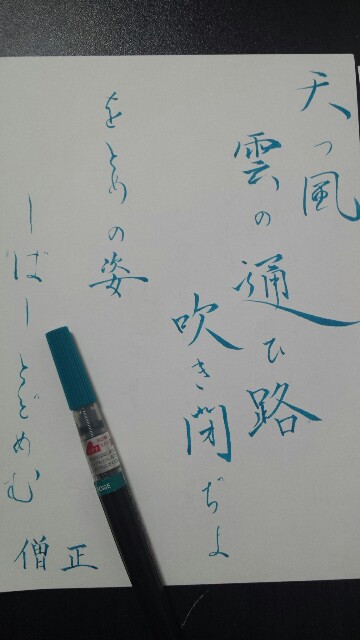 天つ風
雲の通ひ路
吹き閉ぢよ
をとめの姿
しばしとどめむ
僧正